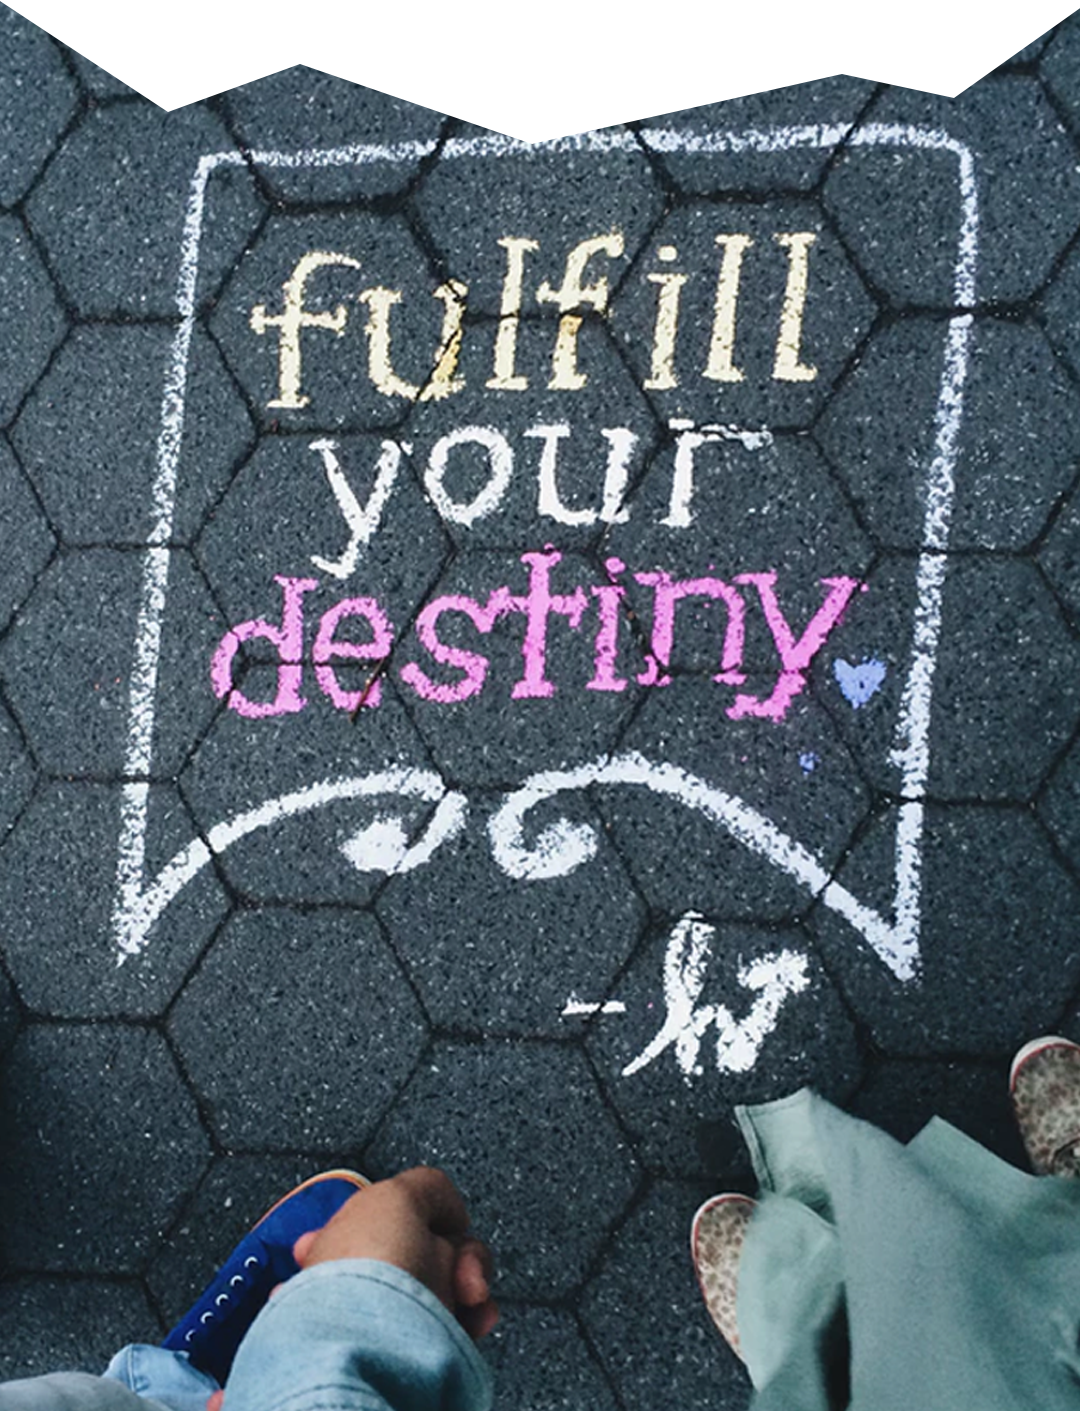 fulfill
your
destiny